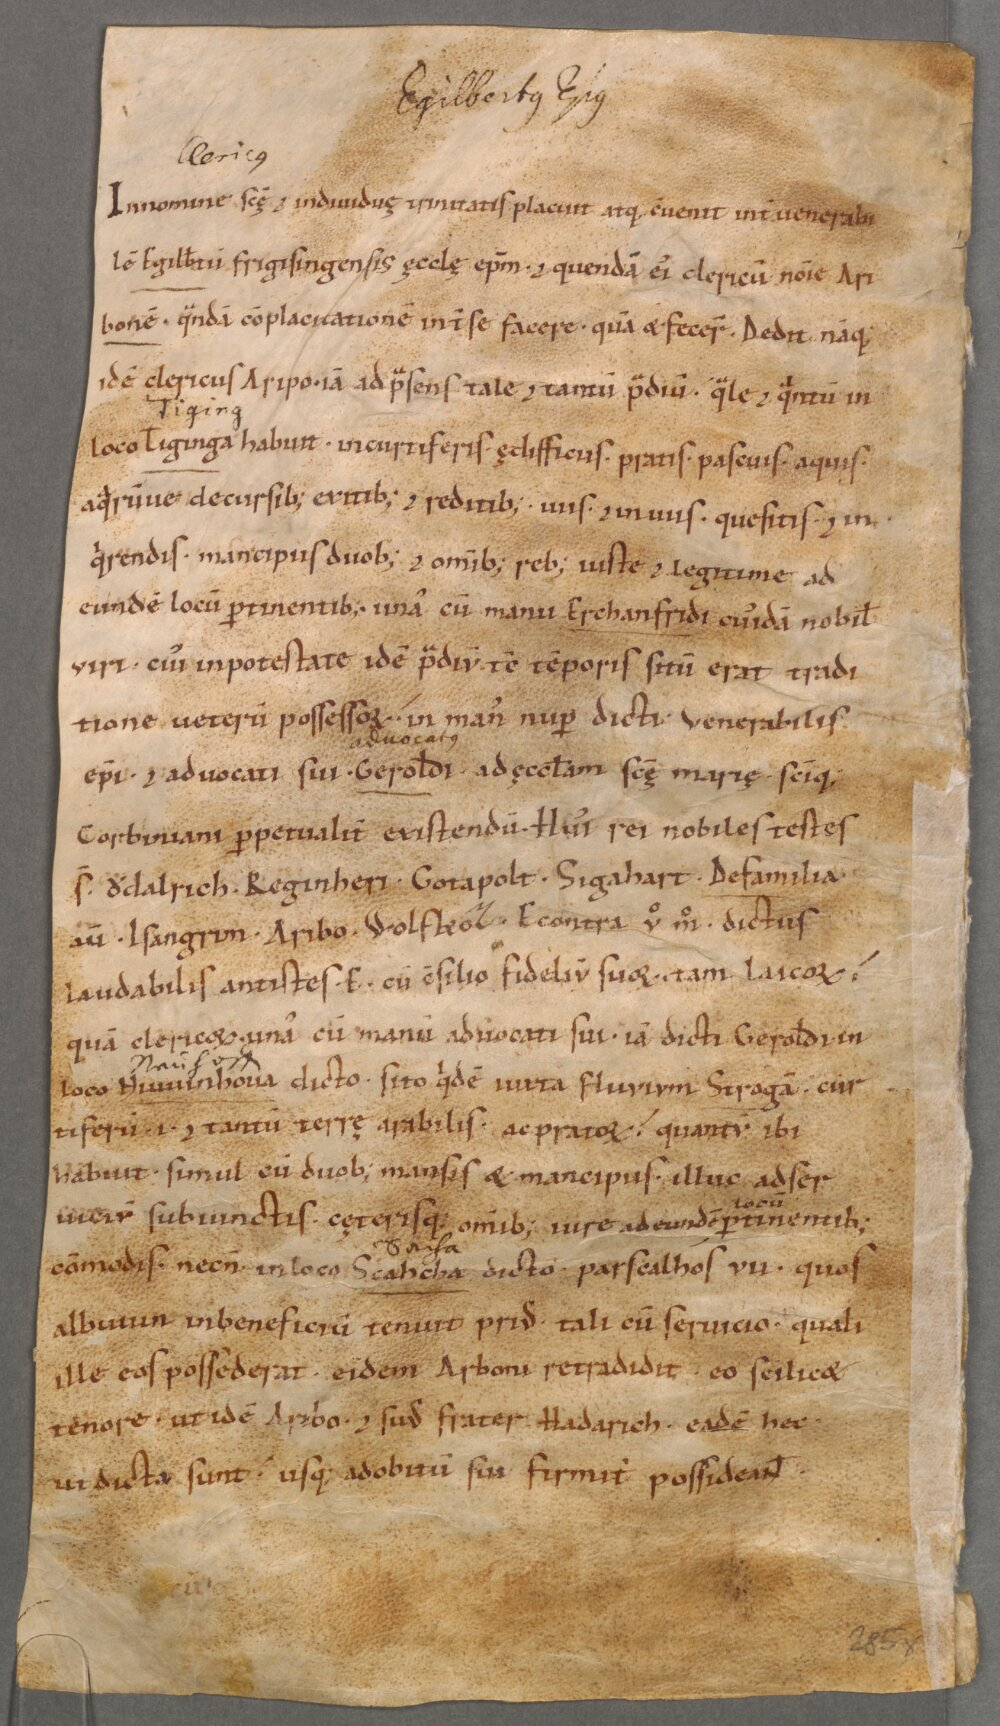 Egilbertꝯ Epiꝯ
Clericꝯ
Innomine scę̄ ⁊ indiuiduę trinitatis placuit atq; euenit int̄ uenerabi
lē Egilb̄tū frigisingensis ęccłę ep̄m · ⁊ quendā ei᾽ clericū nōie Ari
bonē · q̄ndā cōplacitationē int̄ se facere · quā & fecer̄ · Dedit nāq;
idē clericus Aripo · iā ad p̄sens tale ⁊ tantū p̄diū · q̄le ⁊ q̄ntū in
Tiging
loco Tiginga habuit · incurtiferis · ędifficiis · pratis · pascuis · aquis ·
aq̄rūue decursib; exitib; ⁊ reditib; · uiis · ⁊ inuiis · quesitis · ⁊ in
q̄rendis · mancipiis duob; ⁊ om̄ib; reb; iuste ⁊ legitime ad
eundē locū ꝑtinentib; · una᾽ cū manu Erchanfridi cui᾽dā nobił
viri · cui᾽ inpotestate idē p̄diū · tē tēporis sitū erat tradi
tione ueterū possessoꝝ · in man᾽ nuꝑ dicti venerabilis
advocatꝯ
ep̄i · ⁊ aduocati sui · Gerołdi · adęccłam scę̄ marię · scīq;
Corbiniani ꝑpetualit̄ existendū · Hui᾽ rei nobiles testes
s̄ · Ŏdalrich · Reginheri · Gotapolt · Sigahart · Defamilia
aū · Isangrim · Aribo · Wolftregil · Econtra v̊ m̊ · dictus
laudabilis antistes · E · cū c̄silio fideliū suoꝝ · tam laicoꝝ
quā clericoꝝ · una᾽ cū manu aduocati sui · iā dicti Gerołdi in
Neüfoſt
loco Niuuinhoua dicto · sito q̄dē iuxta fluvium Strogā · cur
tiferū · i · ⁊ tantū terrę arabilis · ac pratoꝝ quantū ibi
habuit · simul cū duob; mansis & mancipiis · illuc adser
uiciū subiunctis · cęterisq; om̄ib; iure adeundē locū ꝑtinentib;
cōmodis · necn̄ · inloco Scahcha dicto · parscalhos vii · quos
albuuin inbeneficiū tenuit prid̄ · tali cū seruicio · quali
ille eos possederat · eidem Arboni retradidit · eo scilic&
tenore · ut idē Aribo · ⁊ sus᾽ frater Hadarich · eadē hec
ut dicta sunt · usq; adobitū sui firmit̄ possideant
285